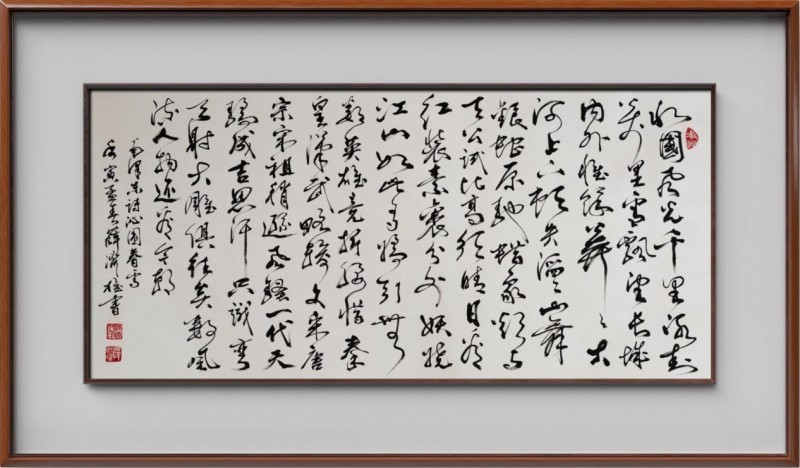 北國風光千里冰封
萬里雪飄望長城
内外惟餘莽ゝ大
河上下頓失滔ゝ山舞
銀蛇原馳蠟象欲與
天公試比高須晴日看
紅裝素裹分外妖嬈
江山如此多嬌引無
數英雄競折腰惜秦
皇漢武略輸文采唐
宗宋祖稍遜風騷一代天
驕成吉思汗只識彎
弓射大雕俱往矣數風
流人物還看今朝
毛澤東詩沁園春雪
壬寅孟春薛書